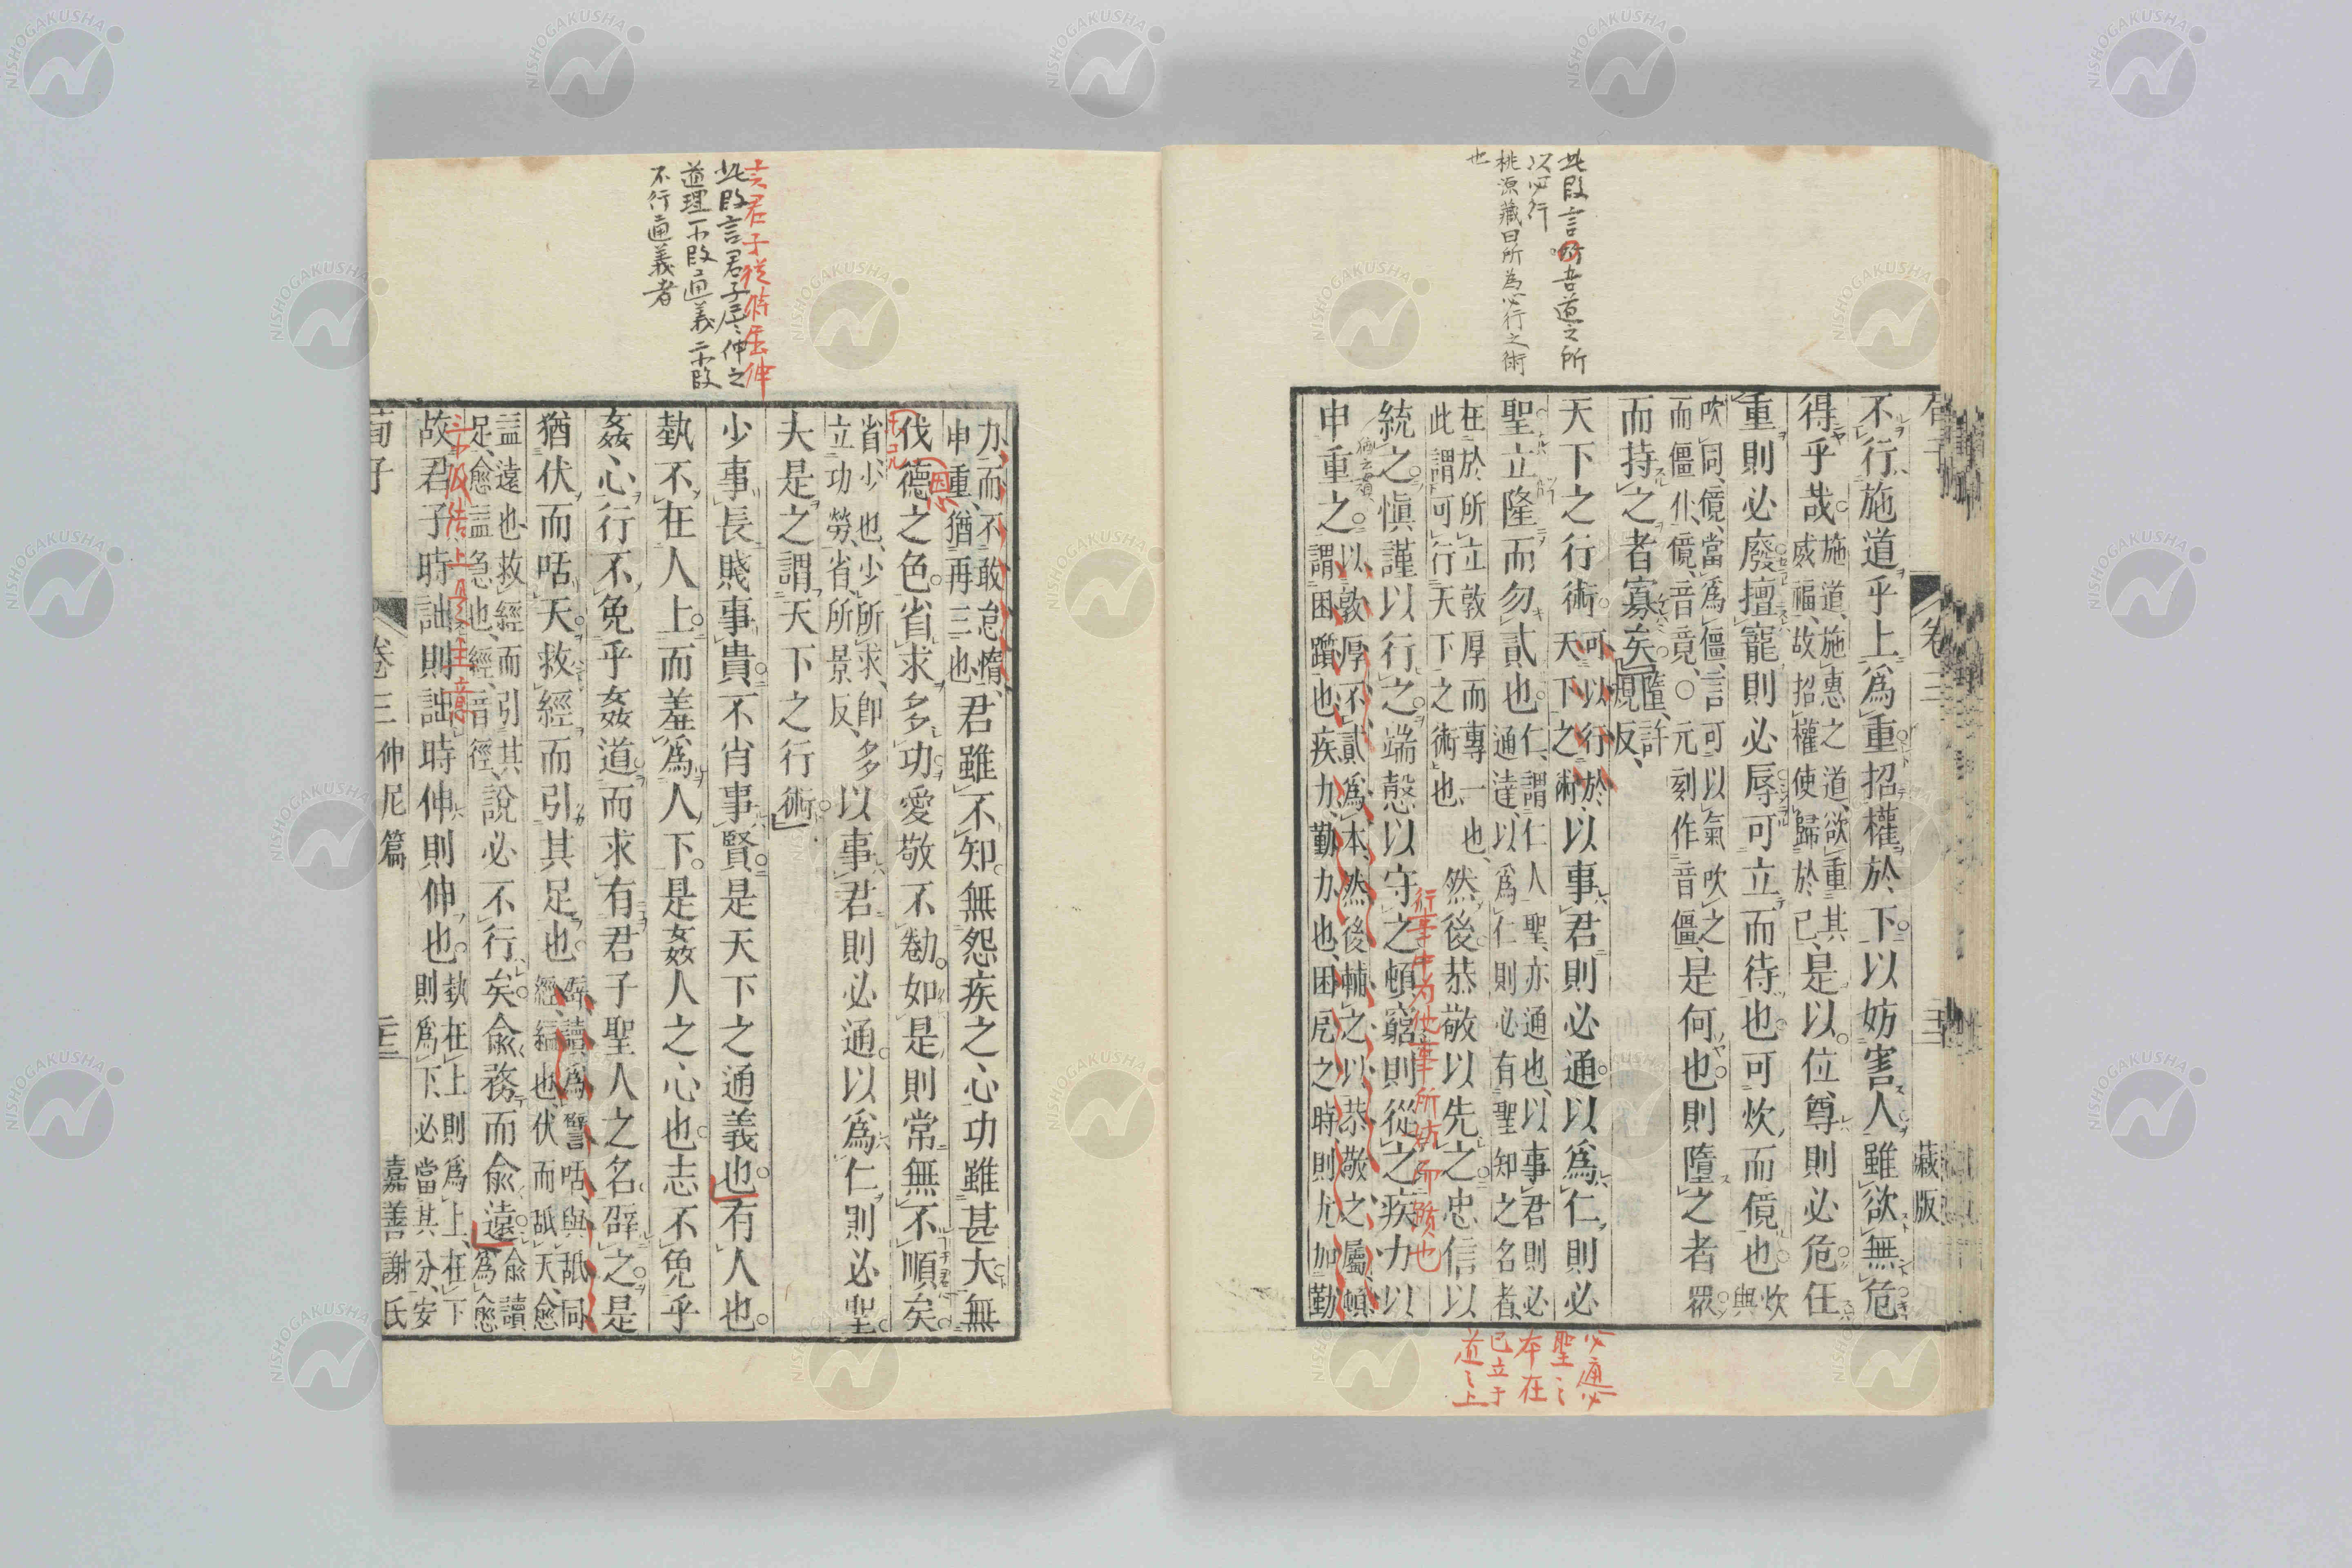 此段言所吾道之所
以必行
桃源藏曰所為必行之術
也
不行施道乎上爲重招權於下以妨害人雖欲無危
得乎哉施道、施惠之道、欲重其威福、故招權使歸於己、是以位尊則必危任
重則必廢擅寵則必辱可立而待也可炊而僵也炊與
吹同、僵當爲僵、言可以氣吹之而僵仆、僵音竟、〇元刻作音僵、是何也則墮之者衆
而持之者寡矣墮、許規反、
天下之行術可以行於天下之術、以事君則必通以爲仁則必
聖立隆而勿貳也仁、謂仁人聖、亦通也、以事君則必通達、以爲仁則必有聖知之名者、
在於所立敦厚而專一也、此謂可行天下之術也然後恭敬以先之忠信以
統之愼謹以行之端慤以守之頓窮則從之疾力以
申重之以敦厚不貳爲本、然後輔之以恭敬之屬、頓謂困躓也、疾力、勤力也、困戹之時、則尤加勤
行事中为他事所
必通必
聖之
本在
已立于
道之上
藏版
言君子從時屈伸
此段言君子屈伸之
道理一不段通義二不段
不行通義者
力、而不敢怠惰、申重、猶再三也、君雖不知無怨疾之心功雖甚大無
伐德之色省求多功愛敬不勌如是則常無不順矣
省、少也、少所求、即多立功勞、省、所景反、以事君則必通以爲仁則必聖
夫是之謂天下之行術
少事長賤事貴不肖事賢是天下之通義也有人也
埶不在人上而羞爲人下是姦人之心也志不免乎
姦心行不免乎姦道而求有君子聖人之名辟之是
猶伏而咶天救經而引其足也辟、讀爲譬、咶、與舐同、經、縊也、伏而舐天、愈
益遠也、救經而引其足、愈益急也、經、音徑、說必不行矣俞務而俞遠俞讀爲愈
故君子時詘則詘時伸則伸也埶在上則爲上、在下則爲下、必當其分、安
荀子 卷三 仲尼篇 嘉善謝氏